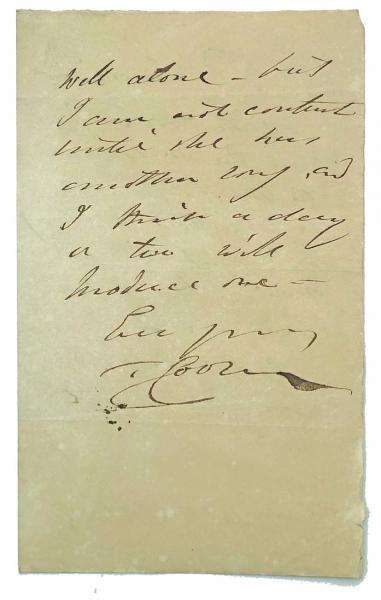 well alone - but
I am not content
until she has
another
I think a day
or two will
produce one -
Ever yours